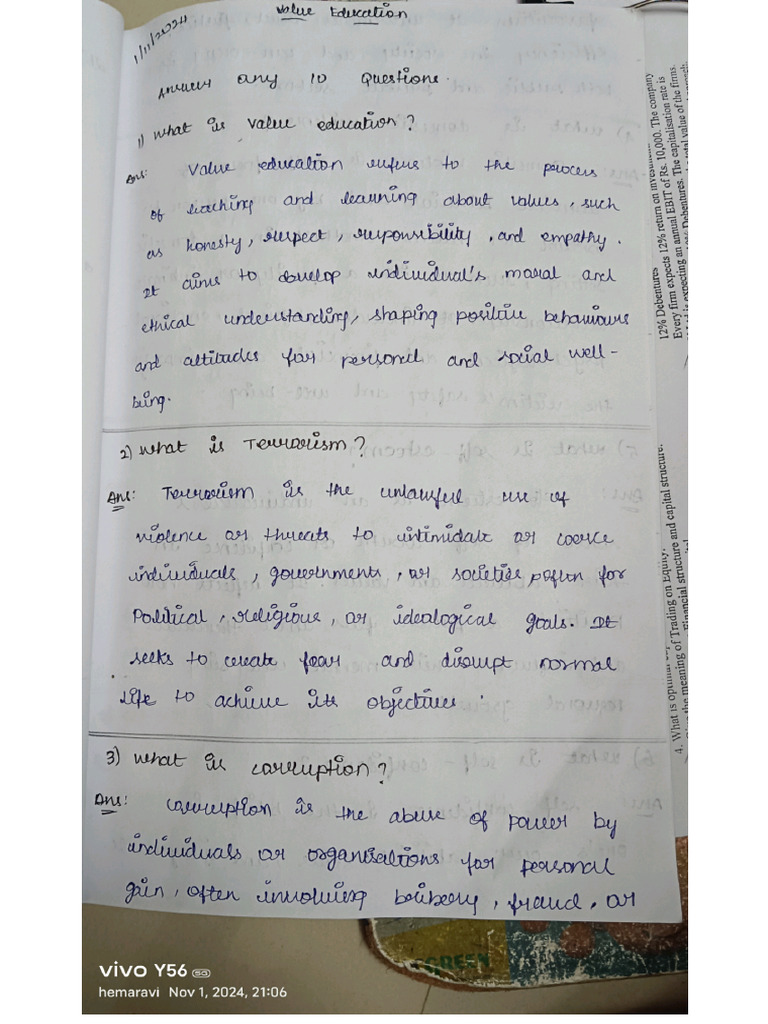 Value Education
1/11/2024
Answer any 10 Questions.
1) What is value education?
Ans: Value education refers to the process
of teaching and learning about values, such
as honesty, respect, responsibility, and empathy.
It aims to develop individual's moral and
ethical understanding, shaping positive behaviours
and attitudes for personal and social well-
being.
2) What is Terrorism?
Ans: Terrorism is the unlawful use of
violence or threats to intimidate or coerce
individuals, governments, or societies, often for
Political, religious, or idealogical goals. It
seeks to create fear and disrupt normal
life to achieve its objectives.
3) What is corruption?
Ans: Corruption is the abuse of power by
individuals or organisations for personal
gain, often involving bribery, fraud, or
12% Debentures
Every firm expects 12% return on
is expecting an annual EBIT of Rs. 10,000. The company
Debentures. The capitalisation rate is
value of the firms.
4. What is
meaning of Trading on Equity.
Financial structure and capital structure.
GREEN
vivo Y56 5G
hemaravi Nov 1, 2024, 21:06